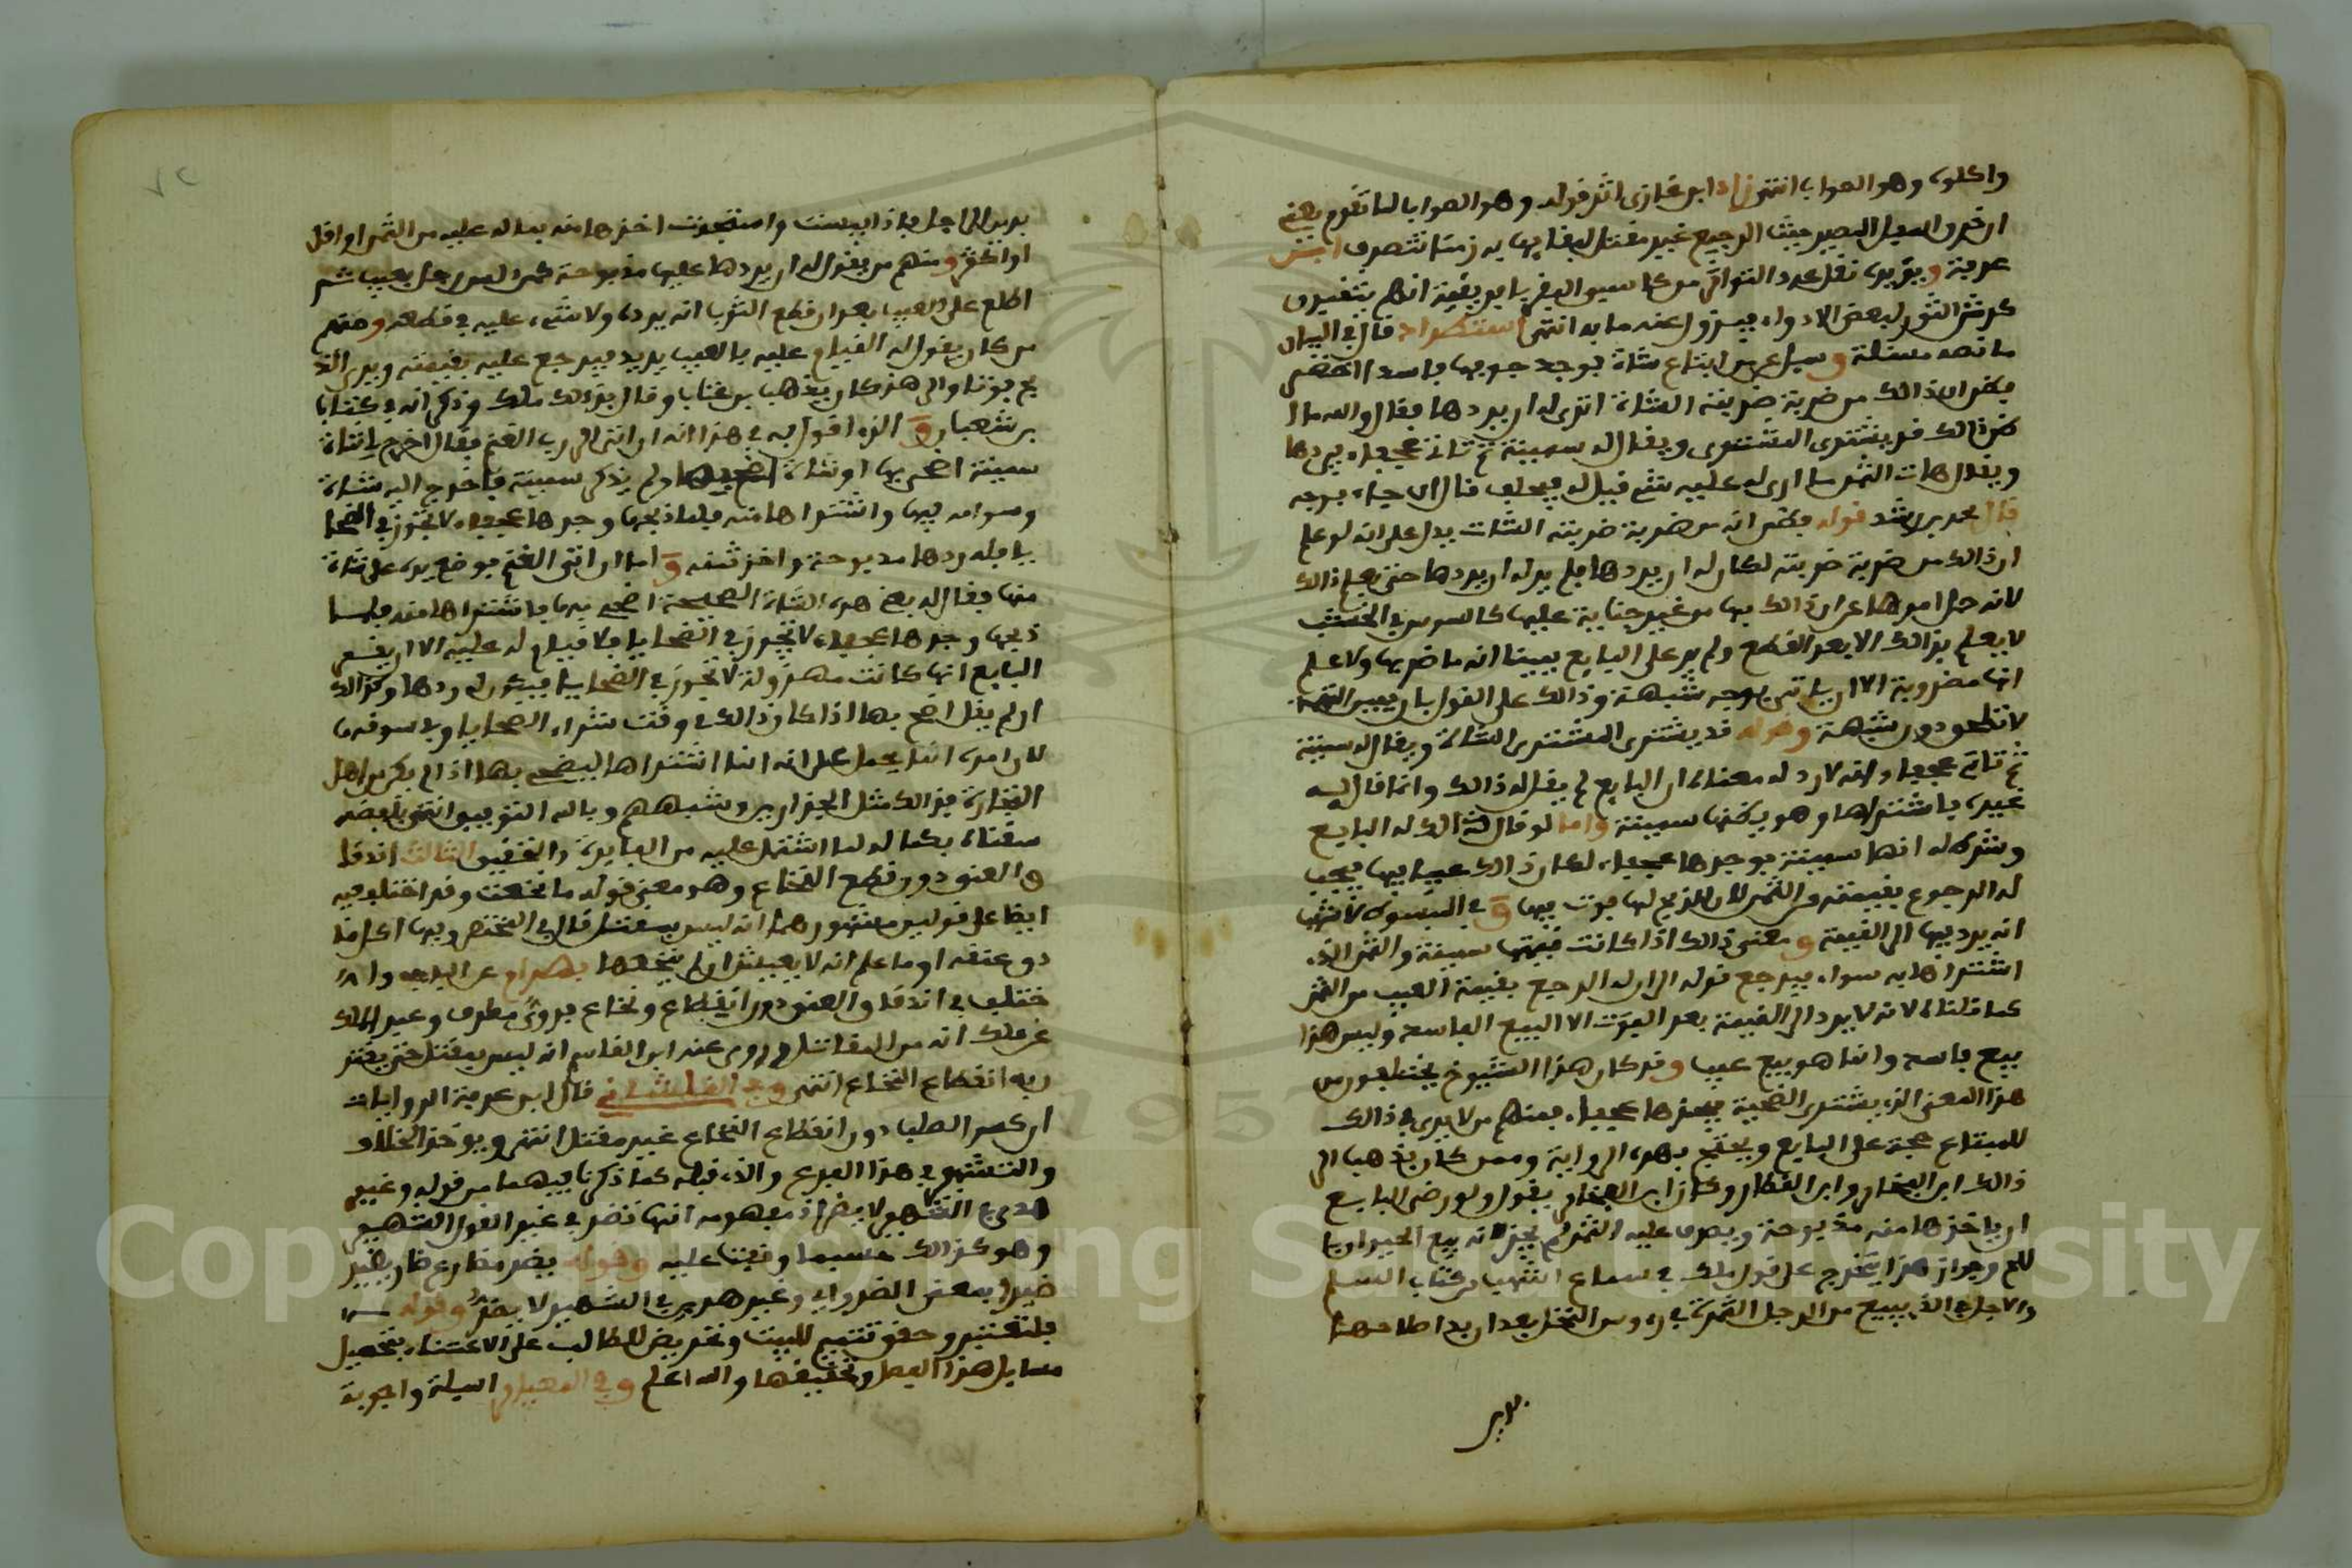 واكلوه وهو الصواب انتهى زاد ابن غازي اثر قوله وهو الصواب لما تقدم يعني
ان خرو الصيل البصير حيث الرجيع غير مقتل لبقايها به زمنا تتصرف ابن
عرفة ويؤيده نقل عدد التواتر من كاسبي البقر بافريقية انهم يثقبون
كرش الثور لبعض الادواء فيزول عنه ما به انتهى استطراد قال في البيان
ما نصه مسئلة وسيل عمن ابتاع شاة فوجد جوفها فاسدا اخضر
فيظن ان ذالك من ضربة ضربته الشاة اترى له ان يردها فقال والله ما
ذالك قد يشتري المشتري ويقال له سمينة ثم تاتي عجفاء فيردها
ويقول هات الثمن ما ارى له عليه شيء قيل له فيحلف قال ان جاء بوجه
قال محمد بن رشد قوله فيظن انه من ضربة ضربته الشات يدل على انه لو علم
ان ذالك من ضربة ضربته لكان له ان يردها فلم ير له ان يردها حتى يعلم ذالك
لانه حمل امرها على ان ذالك بها من غير جناية عليها كالسوس في الخشب
لا يعلم بذالك الا بعد القطع ولم ير على البايع يمينا انه ما ضربها ولا علم
انها مضروبة الا ان ياتي بوجه شبهة وذالك على القول بان يمين التهمة
لا تلحق دون شبهة وقوله قد يشتري المشتري الشاة ويقال له سمينة
ثم تاتي عجفاء وانه لا رد له معناه ان البايع لم يقل له ذالك وانما قال له
غيره فاشتراها وهو يظنها سمينة واما لو قال ذالك له البايع
وشرط له انها سمينة فوجدها عجفاء لكان ذالك عيبا فيها فيجب
له الرجوع بقيمته من الثمن لان الذبح لها فوت فيها وفي المبسوط لاشهب
انه يرد فيها الى القيمة ومعنى ذالك اذا كانت قيمتها سمينة والثمن الذي
اشتراها به سواء فيرجع قوله الى ان له الرجوع بقيمة العيب من الثمن
كما قلناه لانه لا يرد الى القيمة بعد الفوت الا البيع الفاسد وليس هذا
بيع فاسد وانما هو بيع عيب وقد كان هذا الشيوخ يختلفون من
هذا المعنى الذي يشتري الضحية فيجدها عجفاء فمنهم من لا يرى في ذالك
للمبتاع حجة على البايع ويحتج بهذه الرواية وممن كان يذهب الى
ذالك ابن الفخار وابن القطان وكان ابن الفخار يقول ولو رضي البايع
ان ياخذها منه مذبوحة ويصرف عليه الثمن لم يجز لانه بيع الحيوان با
للحم وجواز هذا يتخرج على قول ملك في سماع اشهب من كتاب السلم
والاجال في الذي يبيع من الرجل الثمرة في رءوس النخل بعد ان بدا صلاحها
بدين
بدين الى اجل فاذا يبست واستجذت اخذها منه بما له عليه من الثمن او اقل
او اكثر ومنهم من يقول له ان يردها عليه مذبوحة كمن
اطلع على العيب بعد ان قطع الثوب انه يرده ولا شيء عليه في قطعه ومنهم
من كان يقول له القيام عليه بالعيب يريد فيرجع عليه بقيمته ويرى الذ
بح فوتا والى هذا كان يذهب بن عتاب وقال بذالك ملك وذكر انه في كتاب
بن شعبان والذي اقول به في هذا انه ان اتى الى رب الغنم فقال اخرج لي شاة
سمينة اضحي بها او شاة اضحي بها ولم يذكر سمينة فاخرج اليه شاة
وسوامه فيها واشتراها منه فلما ذبحها وجدها عجفاء لا تجوز في الضحا
يا فله ردها مذبوحة واخذ ثمنه واما ان اتى الغنم فوضع يده على شاة
منها فقال له بعني هذه الشاة الصحيحة اضحي بها فاشتراها منه فلما
ذبحها وجدها عجفاء لا تجوز في الضحايا فلا قيام له عليه الا ان يقر
البايع انها كانت مهزولة لا تجوز في الضحايا فيكون له ردها وكذالك
ان لم يقل اضحي بها اذا كان ذالك في وقت شراء الضحايا وفي سوقها
لان امره انما يحمل على انه انما اشتراها ليضحي بها اذا لم يكن من اهل
التجارة في ذالك مثل الجزارين وشبههم وبالله التوفيق انتهى بلفظه
سقناه بكماله لما اشتمل عليه من الفايدة والتحقيق الثالث اندقا
ق العنق دون قطع النخاع وهو معنى قوله ما نخعت وقد اختلف فيه
ايضا على قولين مشهورهما انه ليس بمقتل قال في المختصر وفيها اكل ما
دق عنقه او ما علم انه لا يعيش ان لم ينخعها بهرام عن الباجي وا
ختلف في اندقاق العنق دون انقطاع ونخاع فروى مطرف وعبد الملك
عن ملك انه من المقاتل وروى عنه ابن القاسم انه ليس بمقتل حتى يقترن
به انقطاع النخاع انتهى وفي القلشاني قال ابن عرفة الروايات
ان كسر الصلب دون انقطاع النخاع غير مقتل انتهى ويوخذ الخلاف
والتشهير في هذا الفرع والذي قبله كما ذكرنا فيهما من قوله وغير
هذين الشهير لا يضر اذ مفهومه انها تضر في غير القول الشهير
وهو كذالك حسبما وقفنا عليه وقوله يضر مضارع ضار يضير
ضيرا بمعنى الضرواي وغير هذين في الشهير لا يضر وقوله
فلتعتنير وحقق تتميم للبيت وتحريض للطالب على الاعتناء بتحصيل
مسايل هذا الفصل وتحقيقها والله اعلم وفي المعيار اسيلة واجوبة